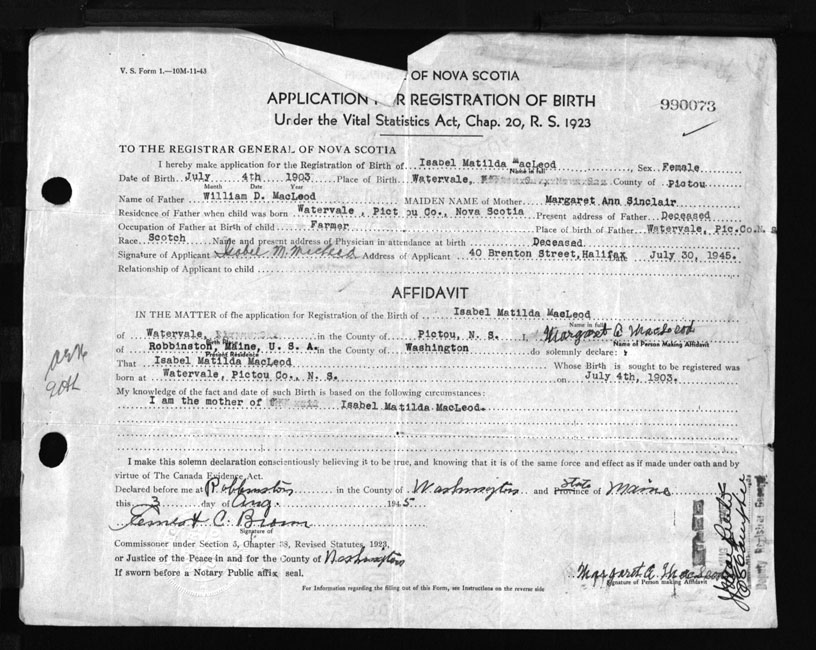 V. S. Form 1.—10M-11-43
OF NOVA SCOTIA
APPLICATION FOR REGISTRATION OF BIRTH
990073
Under the Vital Statistics Act, Chap. 20, R. S. 1923
TO THE REGISTRAR GENERAL OF NOVA SCOTIA
I hereby make application for the Registration of Birth of Isabel Matilda MacLeod, Sex Female
Name in full
Date of Birth July 4th 1903 Place of Birth Watervale, County of Pictou
Month Date Year
Name of Father William D. MacLeod MAIDEN NAME of Mother Margaret Ann Sinclair
Residence of Father when child was born Watervale, Pict ou Co., Nova Scotia Present address of Father Deceased
Occupation of Father at Birth of child Farmer Place of birth of Father Watervale, Pic.Co.N.S
Race Scotch Name and present address of Physician in attendance at birth Deceased
Signature of Applicant Isabel M. Address of Applicant 40 Brenton Street, Halifax Date July 30, 1945.
Relationship of Applicant to child
AFFIDAVIT
IN THE MATTER of the application for Registration of the Birth of Isabel Matilda MacLeod
Name in full
of Watervale, in the County of Pictou, N. S. I, Margaret A. MacLeod
Birth Place
Name of Person Making Affidavit
of Robbinston, Maine, U. S. A. in the County of Washington do solemnly declare:
Present Residence
That Isabel Matilda MacLeod Whose Birth is sought to be registered was
born at Watervale, Pictou Co., N. S. on July 4th, 1903.
My knowledge of the fact and date of such Birth is based on the following circumstances:
I am the mother of Isabel Matilda MacLeod.
90th
I make this solemn declaration conscientiously believing it to be true, and knowing that it is of the same force and effect as if made under oath and by
virtue of The Canada Evidence Act.
Declared before me at Robbinston in the County of Washington and State Province of Maine
this 3 day of Aug. 1945.
Ernest C. Brown
Signature of
Commissioner under Section 3, Chapter 38, Revised Statutes, 1923,
or Justice of the Peace in and for the County of Washington
If sworn before a Notary Public affix seal.
Margaret A. MacLeod
Signature of Person making Affidavit
For Information regarding the filling out of this Form, see Instructions on the reverse side
Deputy Registrar General